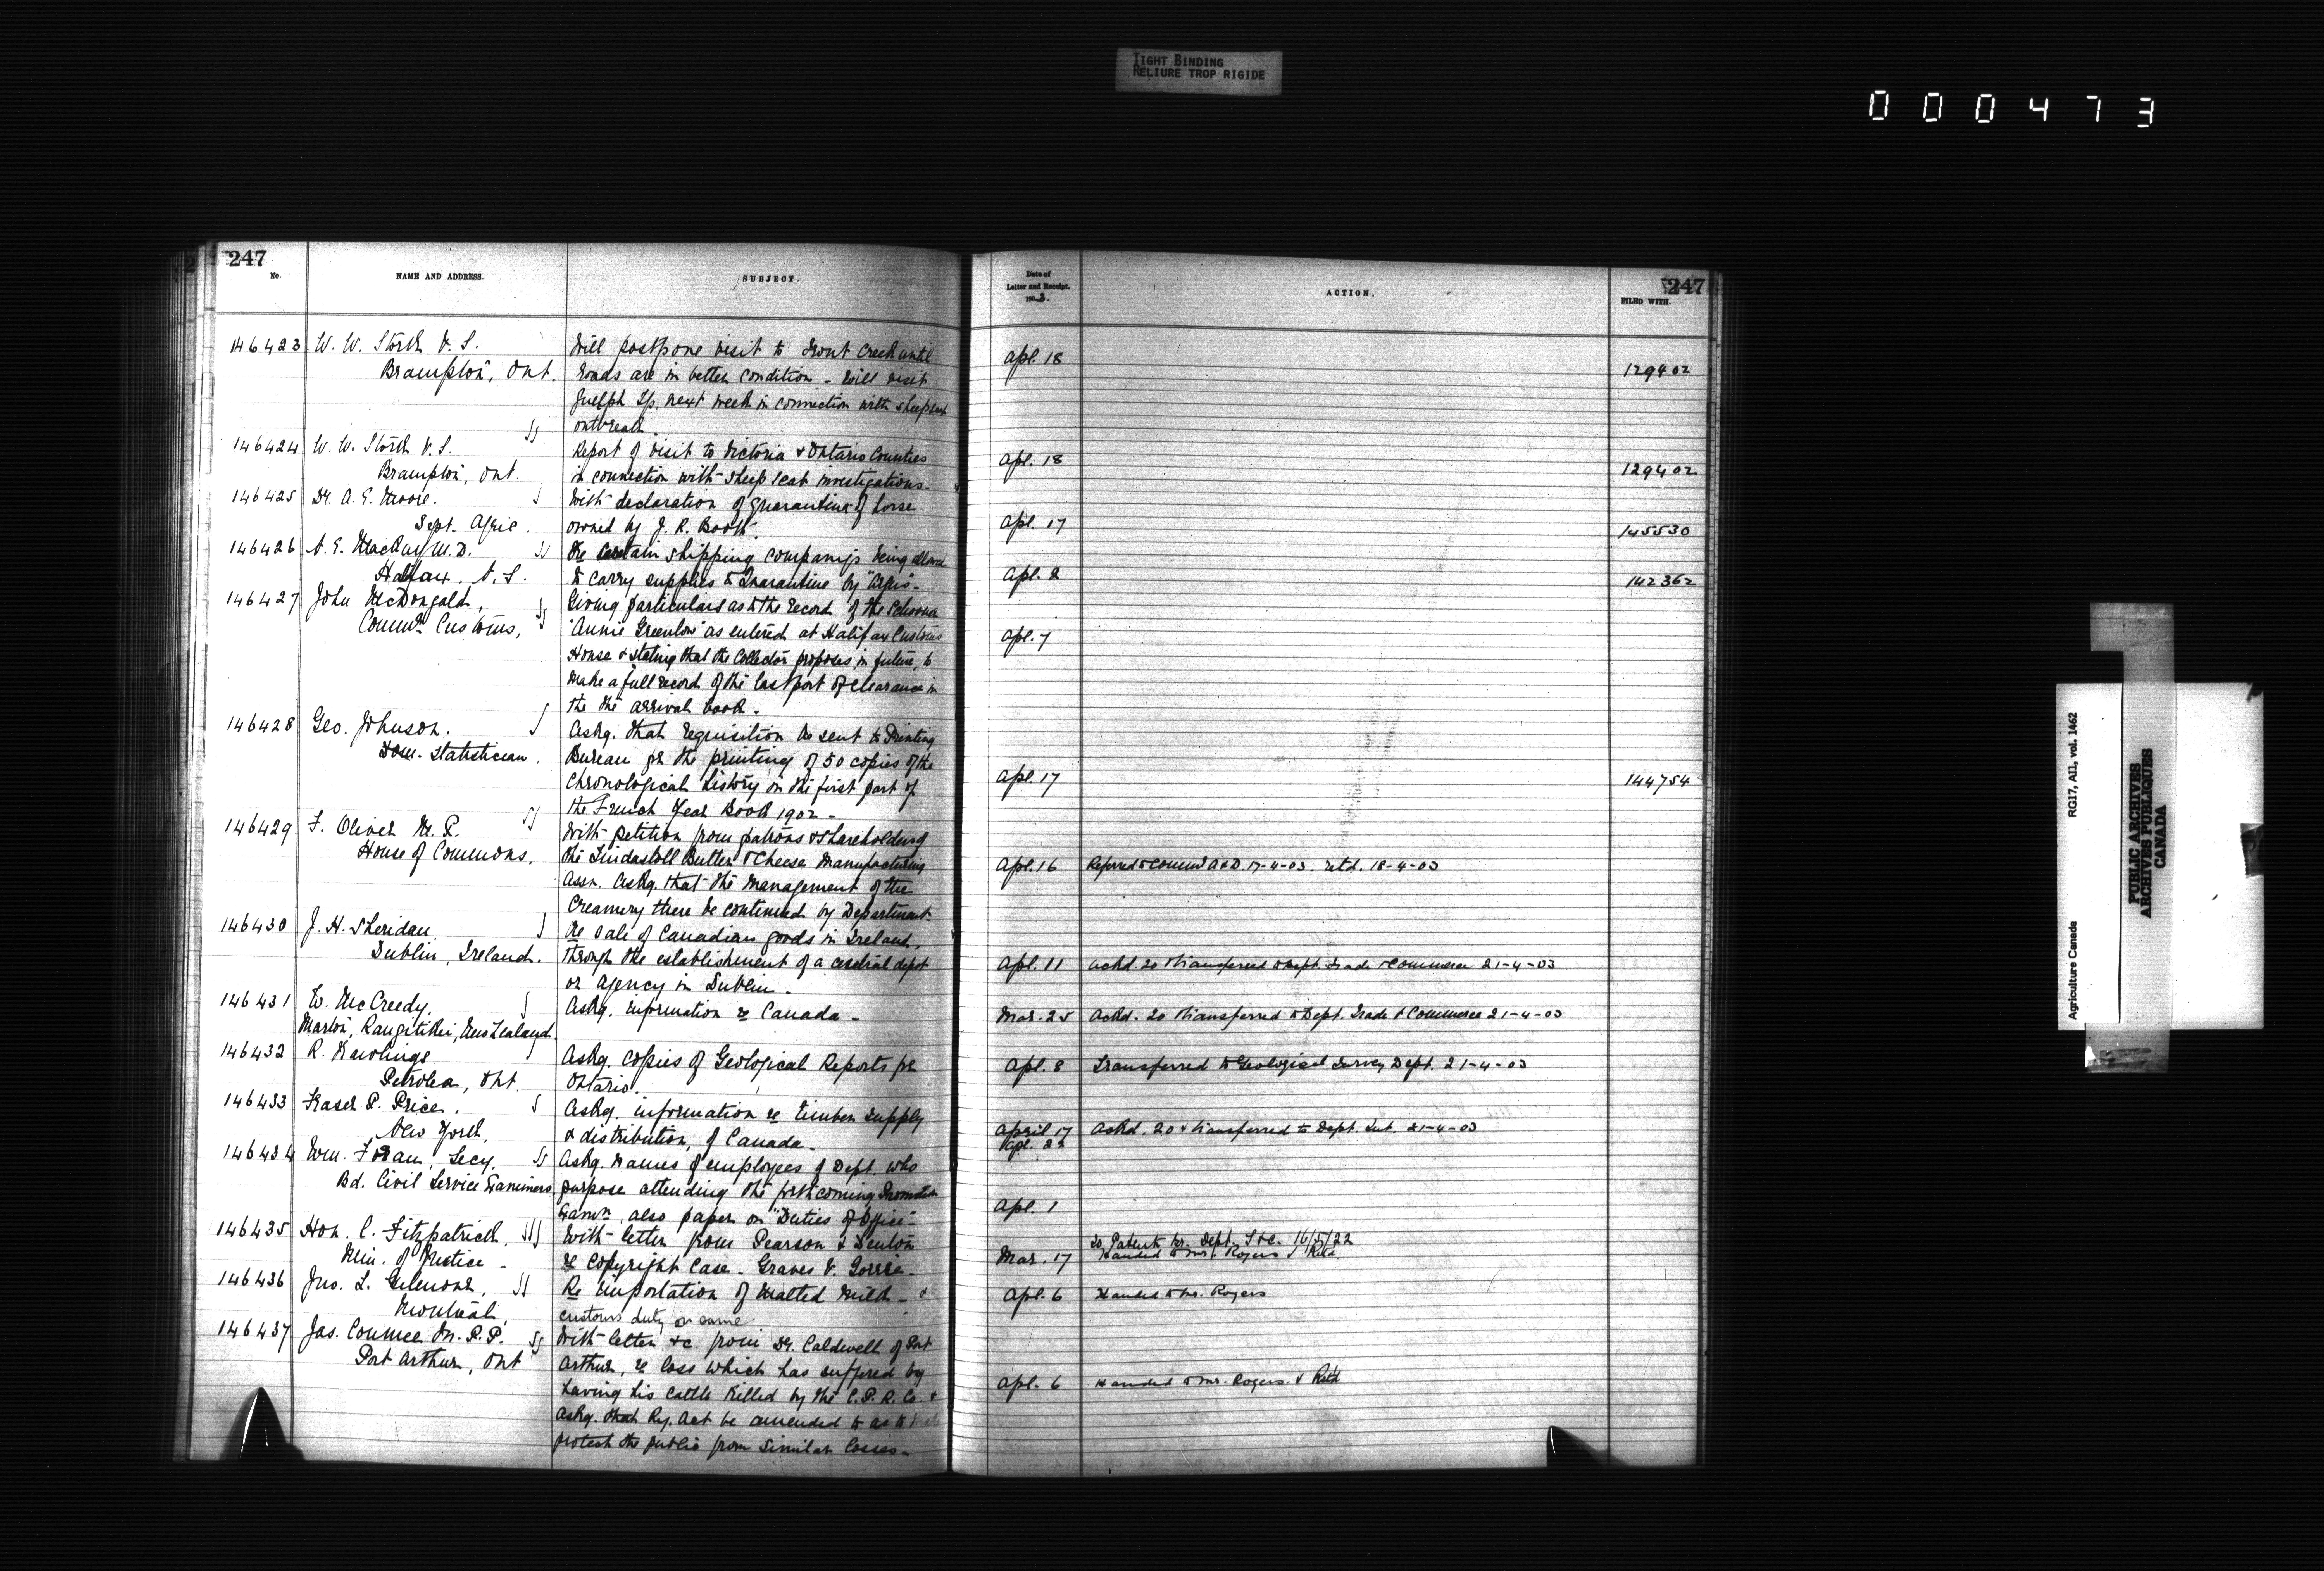 TIGHT BINDING
RELIURE TROP RIGIDE
000473
247
No.
NAME AND ADDRESS.
SUBJECT.
146423 W. W. Stork V. S.
Brampton, Ont.
Will postpone visit to Trout Creek until
roads are in better condition - Will visit
Guelph Tp. next week in connection with sheep scab
outbreak.
146424 W. W. Stork V. S.
Brampton, Ont.
Report of visit to Victoria & Ontario Counties
in connection with sheep scab investigations.
146425 Dr. A. E. Moore.
Dept. Agric.
With declaration of quarantine of horse
owned by J. R. Booth.
146426 N. E. MacKay M. D.
Halifax. N. S.
Re certain shipping companys being allowed
to carry supplies to Quarantine by "Argus".
146427 John McDougald,
Commr. Customs,
Giving particulars as to the record of the Schooner
"Annie Greenlow" as entered at Halifax Customs
House & stating that the Collector proposes, in future, to
make a full record of the last port of clearance in
the the arrival book.
146428 Geo. Johnson.
Dom. Statistician.
Askg. that requisition be sent to Printing
Bureau for the printing of 50 copies of the
Chronological history in the first part of
the French Year Book 1902 -
146429 F. Oliver M. P.
House of Commons.
With petition from patrons & shareholders of
the Tindastoll Butter & Cheese Manufacturing
Assn. askg. that the management of the
Creamery there be continued by Department.
146430 J. H. Sheridan
Dublin, Ireland.
Re sale of Canadian goods in Ireland,
through the establishment of a central depot
or agency in Dublin.
146431 W. McCreedy,
Marton, Rangitikei, New Zealand.
Askg. information re Canada -
146432 R. Rawlings
Petrolea, Ont.
Askg. copies of Geological Reports for
Ontario.
146433 Fraser P. Price.
New York.
Askg. information re timber supply
& distribution, of Canada.
146434 Wm. Foran, Secy.
Bd. Civil Service Examiners.
Askg. names of employees of Dept. who
purpose attending the forthcoming Promotion
Examn. also paper on "Duties of Office".
146435 Hon. C. Fitzpatrick.
Min. of Justice -
With letter from Pearson & Denton
re Copyright Case - Graves v. Gorrie.
146436 Jno. L.
Montreal.
Re importation of Malted Milk - &
customs duty on same.
146437 Jas. Conmee M. P. P.
Port Arthur, Ont
With letter &c from Dr. Caldwell of Port
Arthur, re loss which has suffered by
having his cattle killed by the C. P. R. Co. &
askg. that Ry. Act be amended so as to
protect the public from similar losses.
247
Date of
Letter and Receipt.
1903.
ACTION.
FILED WITH.
Apl. 18 129402
Apl. 18 129402
Apl. 17 145530
Apl. 2 142362
Apl. 7
Apl. 17 144754
Apl. 16 Referred to Commr A & D. 17-4-03. retd. 18-4-03
Apl. 11 Ackd. 20 & transferred to Dept. Trade & Commerce 21-4-03
Mar. 25 Ackd. 20 & transferred to Dept. Trade & Commerce 21-4-03
Apl. 8 Transferred to Geological Survey Dept. 21-4-03
April 17 Ackd. 20 & transferred to Dept. Int. 21-4-03
Apl. 22
Apl. 1
To Patents br. Dept. T & C. 16/5/22
Mar. 17 Handed to Mr. Rogers & Retd
Apl. 6 Handed to Mr. Rogers
Apl. 6 Handed to Mr. Rogers. & Retd
Agriculture Canada RG17, AII, vol. 1462
PUBLIC ARCHIVES
ARCHIVES PUBLIQUES
CANADA